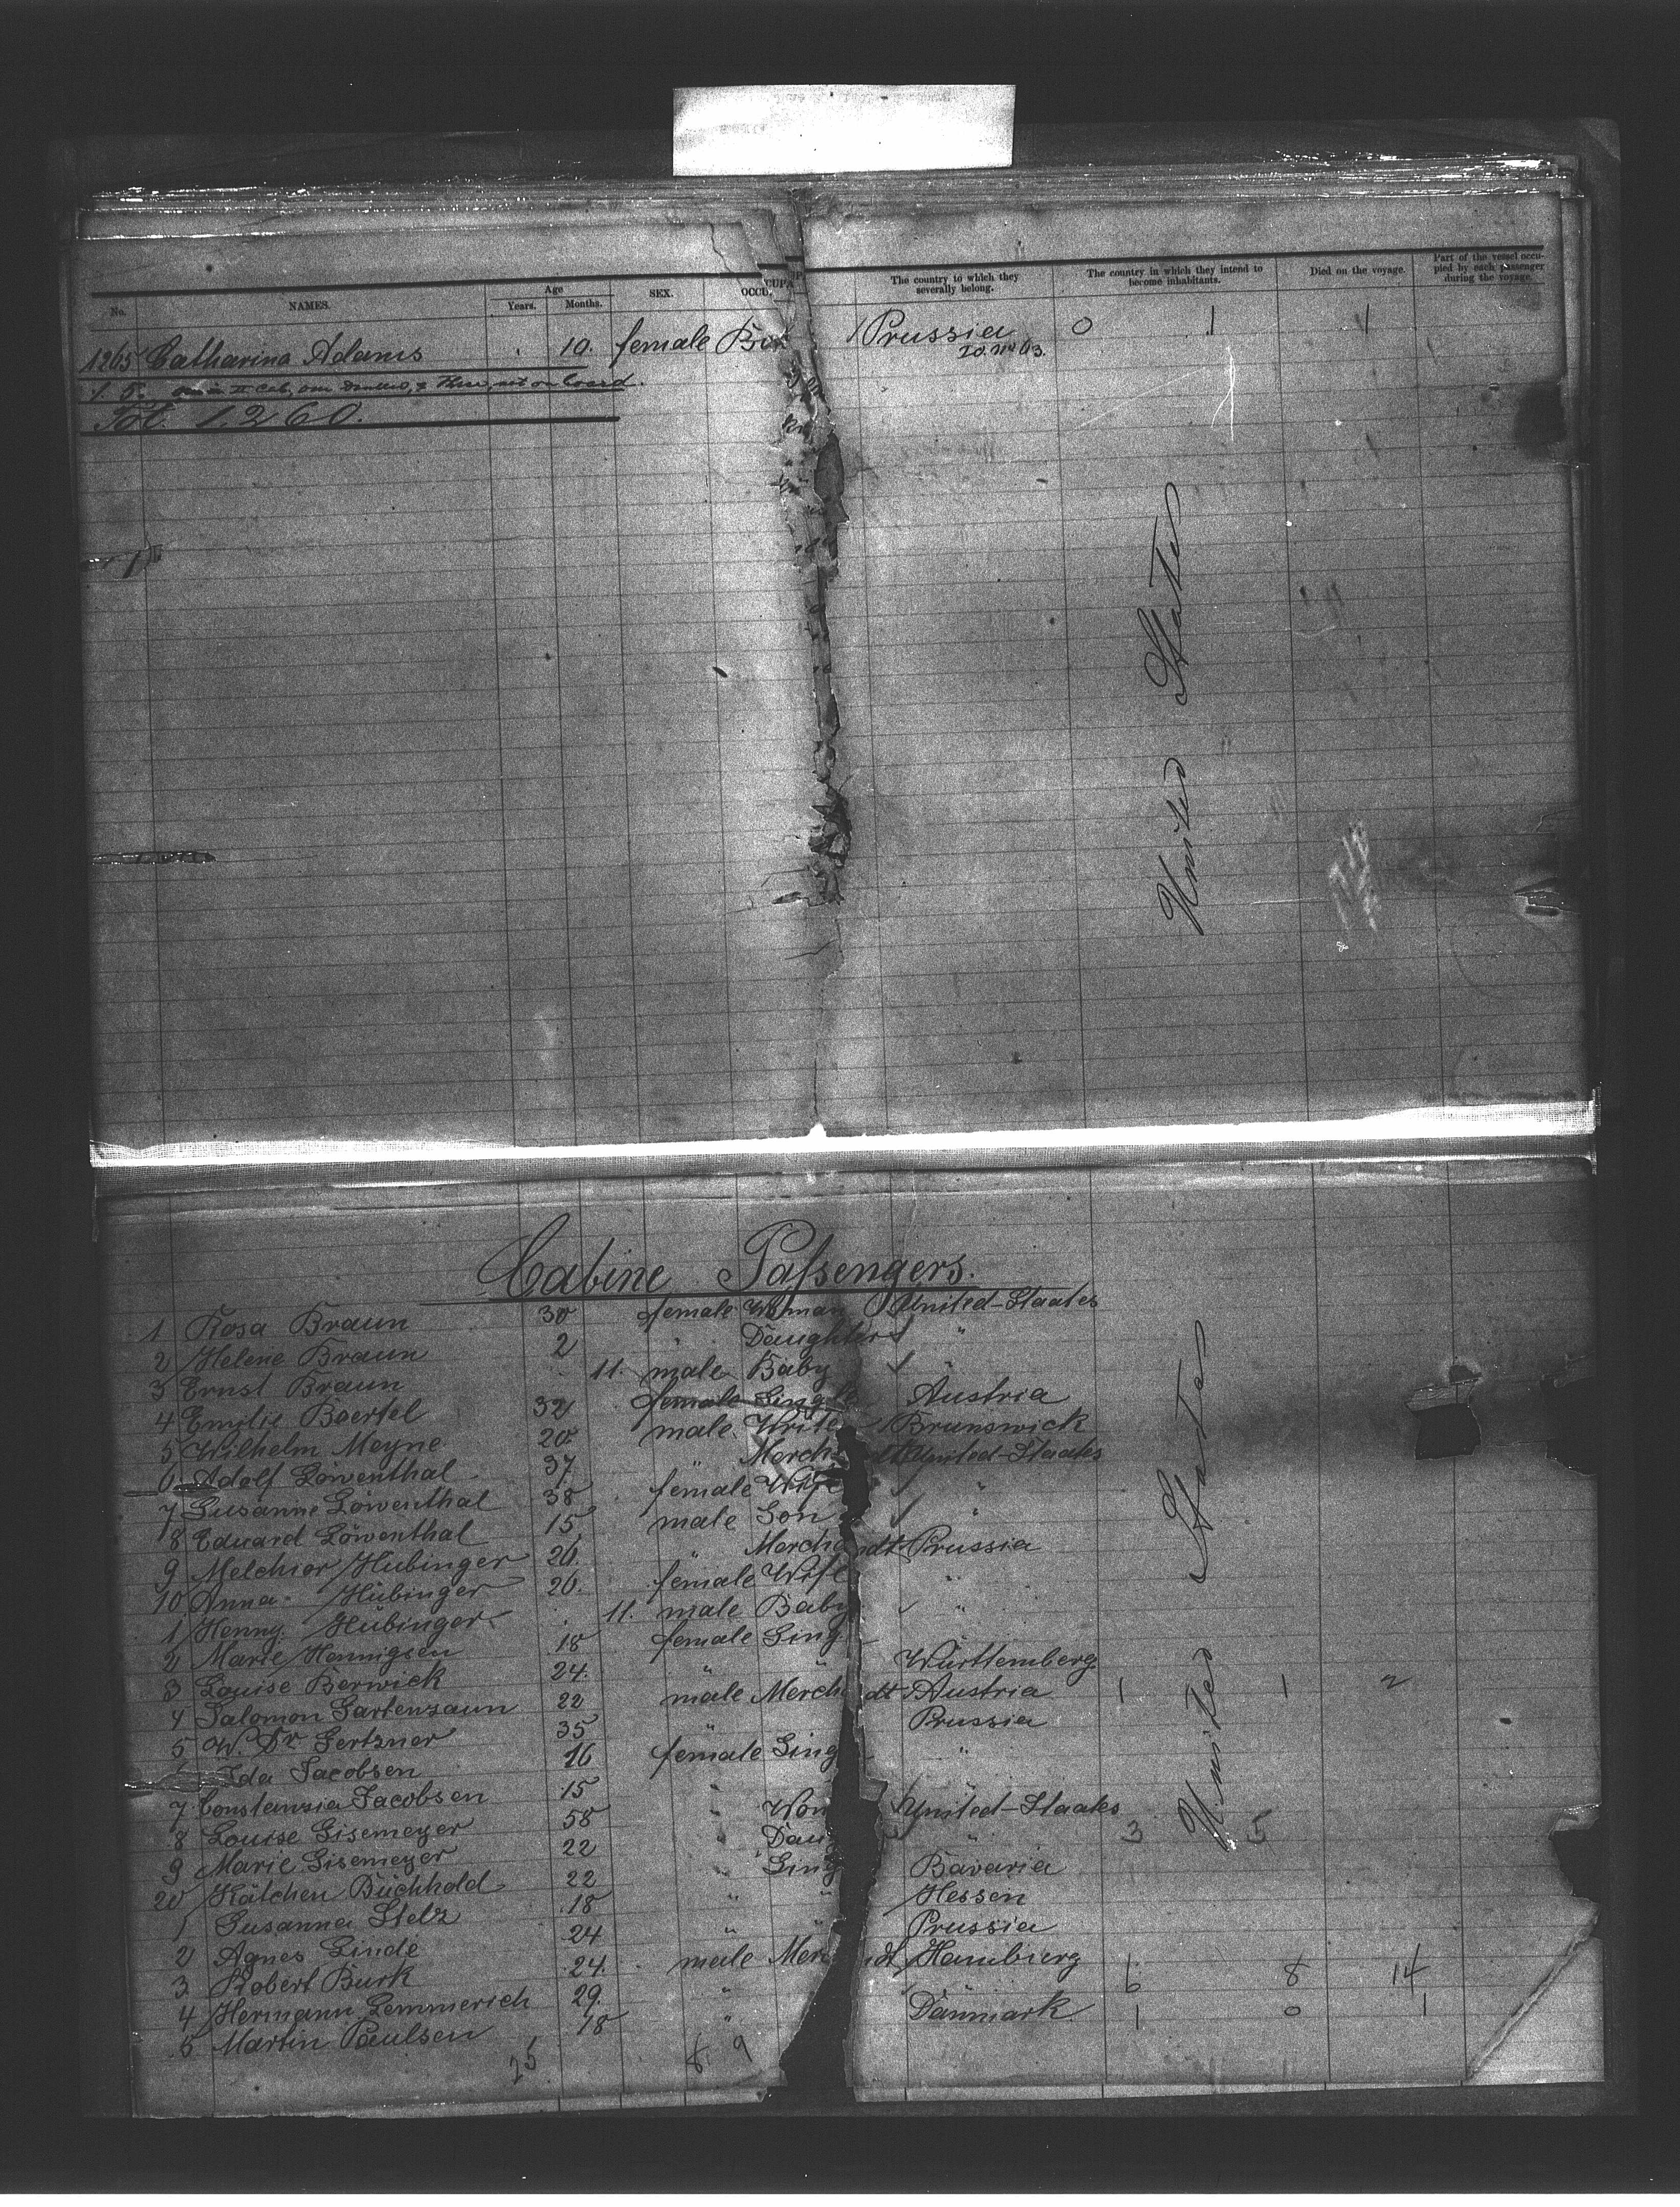 No. NAMES. Age Years. Months. SEX. OCCU. The country to which they severally belong. The country in which they intend to become inhabitants. Died on the voyage. Part of the vessel occupied by each passenger during the voyage.
1265 Catharina Adams 10. female Prussia 0 1 1
Tot. 1260.
United States
Cabine Passengers.
1 Rosa Braun 30 female Woman United-Staates
2 Helene Braun 2 " Daughter "
3 Ernst Braun 11. male Baby
4 Emilie Baertel 32 female Single Austria
5 Wilhelm Meyne 20 male Writer Brunswick
6 Adolf Löwenthal 37 " Merch dt United-Staates
7 Susanne Löwenthal 38 female Wife "
8 Eduard Löwenthal 15 male Son "
9 Melchior Hubinger 26. " Merchandt Prussia
10 Anna Hübinger 26. female Wife "
1 Henny Hübinger 11. male Baby "
2 Marie Hennigsen 18 female Sing
3 Louise Berwick 24. " " Württemberg
4 Salomon Gartenzaun 22 male Merch dt Austria 1 1 2
5 W. Dr Gertzner 35 " Prussia
Ida Jacobsen 16 female Sing "
7 Constanzia Jacobsen 15 "
8 Louise Gisemeyer 58 " Wom United-Staates
9 Marie Gisemeyer 22 " Daug " 3 5
20 Kätchen Büchhold 22 " Sing Bavaria
1 Susanna Stelz 18 " " Hessen
2 Agnes Linde 24 " " Prussia
3 Robert Burk 24. male Mer dt Hamburg 6 8 14
4 Hermann Lemmerich 29. " "
5 Martin Paulsen 18 " Dänmark 1 0 1
United States
25 8 9